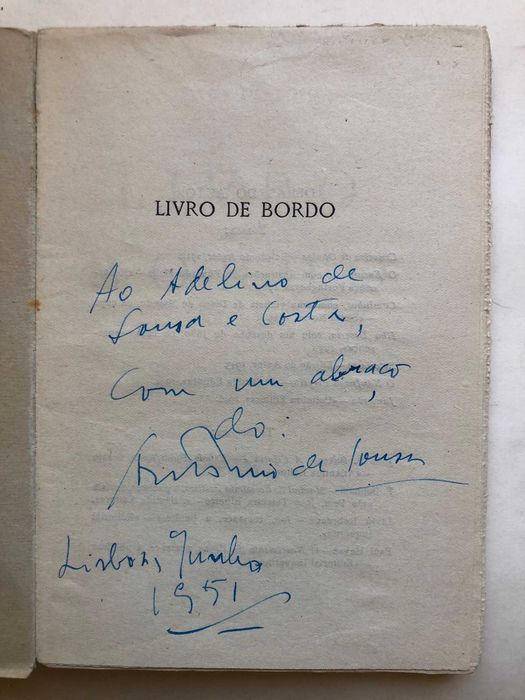 LIVRO DE BORDO
Ao Adelino de
Sousa e Costa,
com um abraço
do:
António de Sousa
Lisboa, Junho
1951